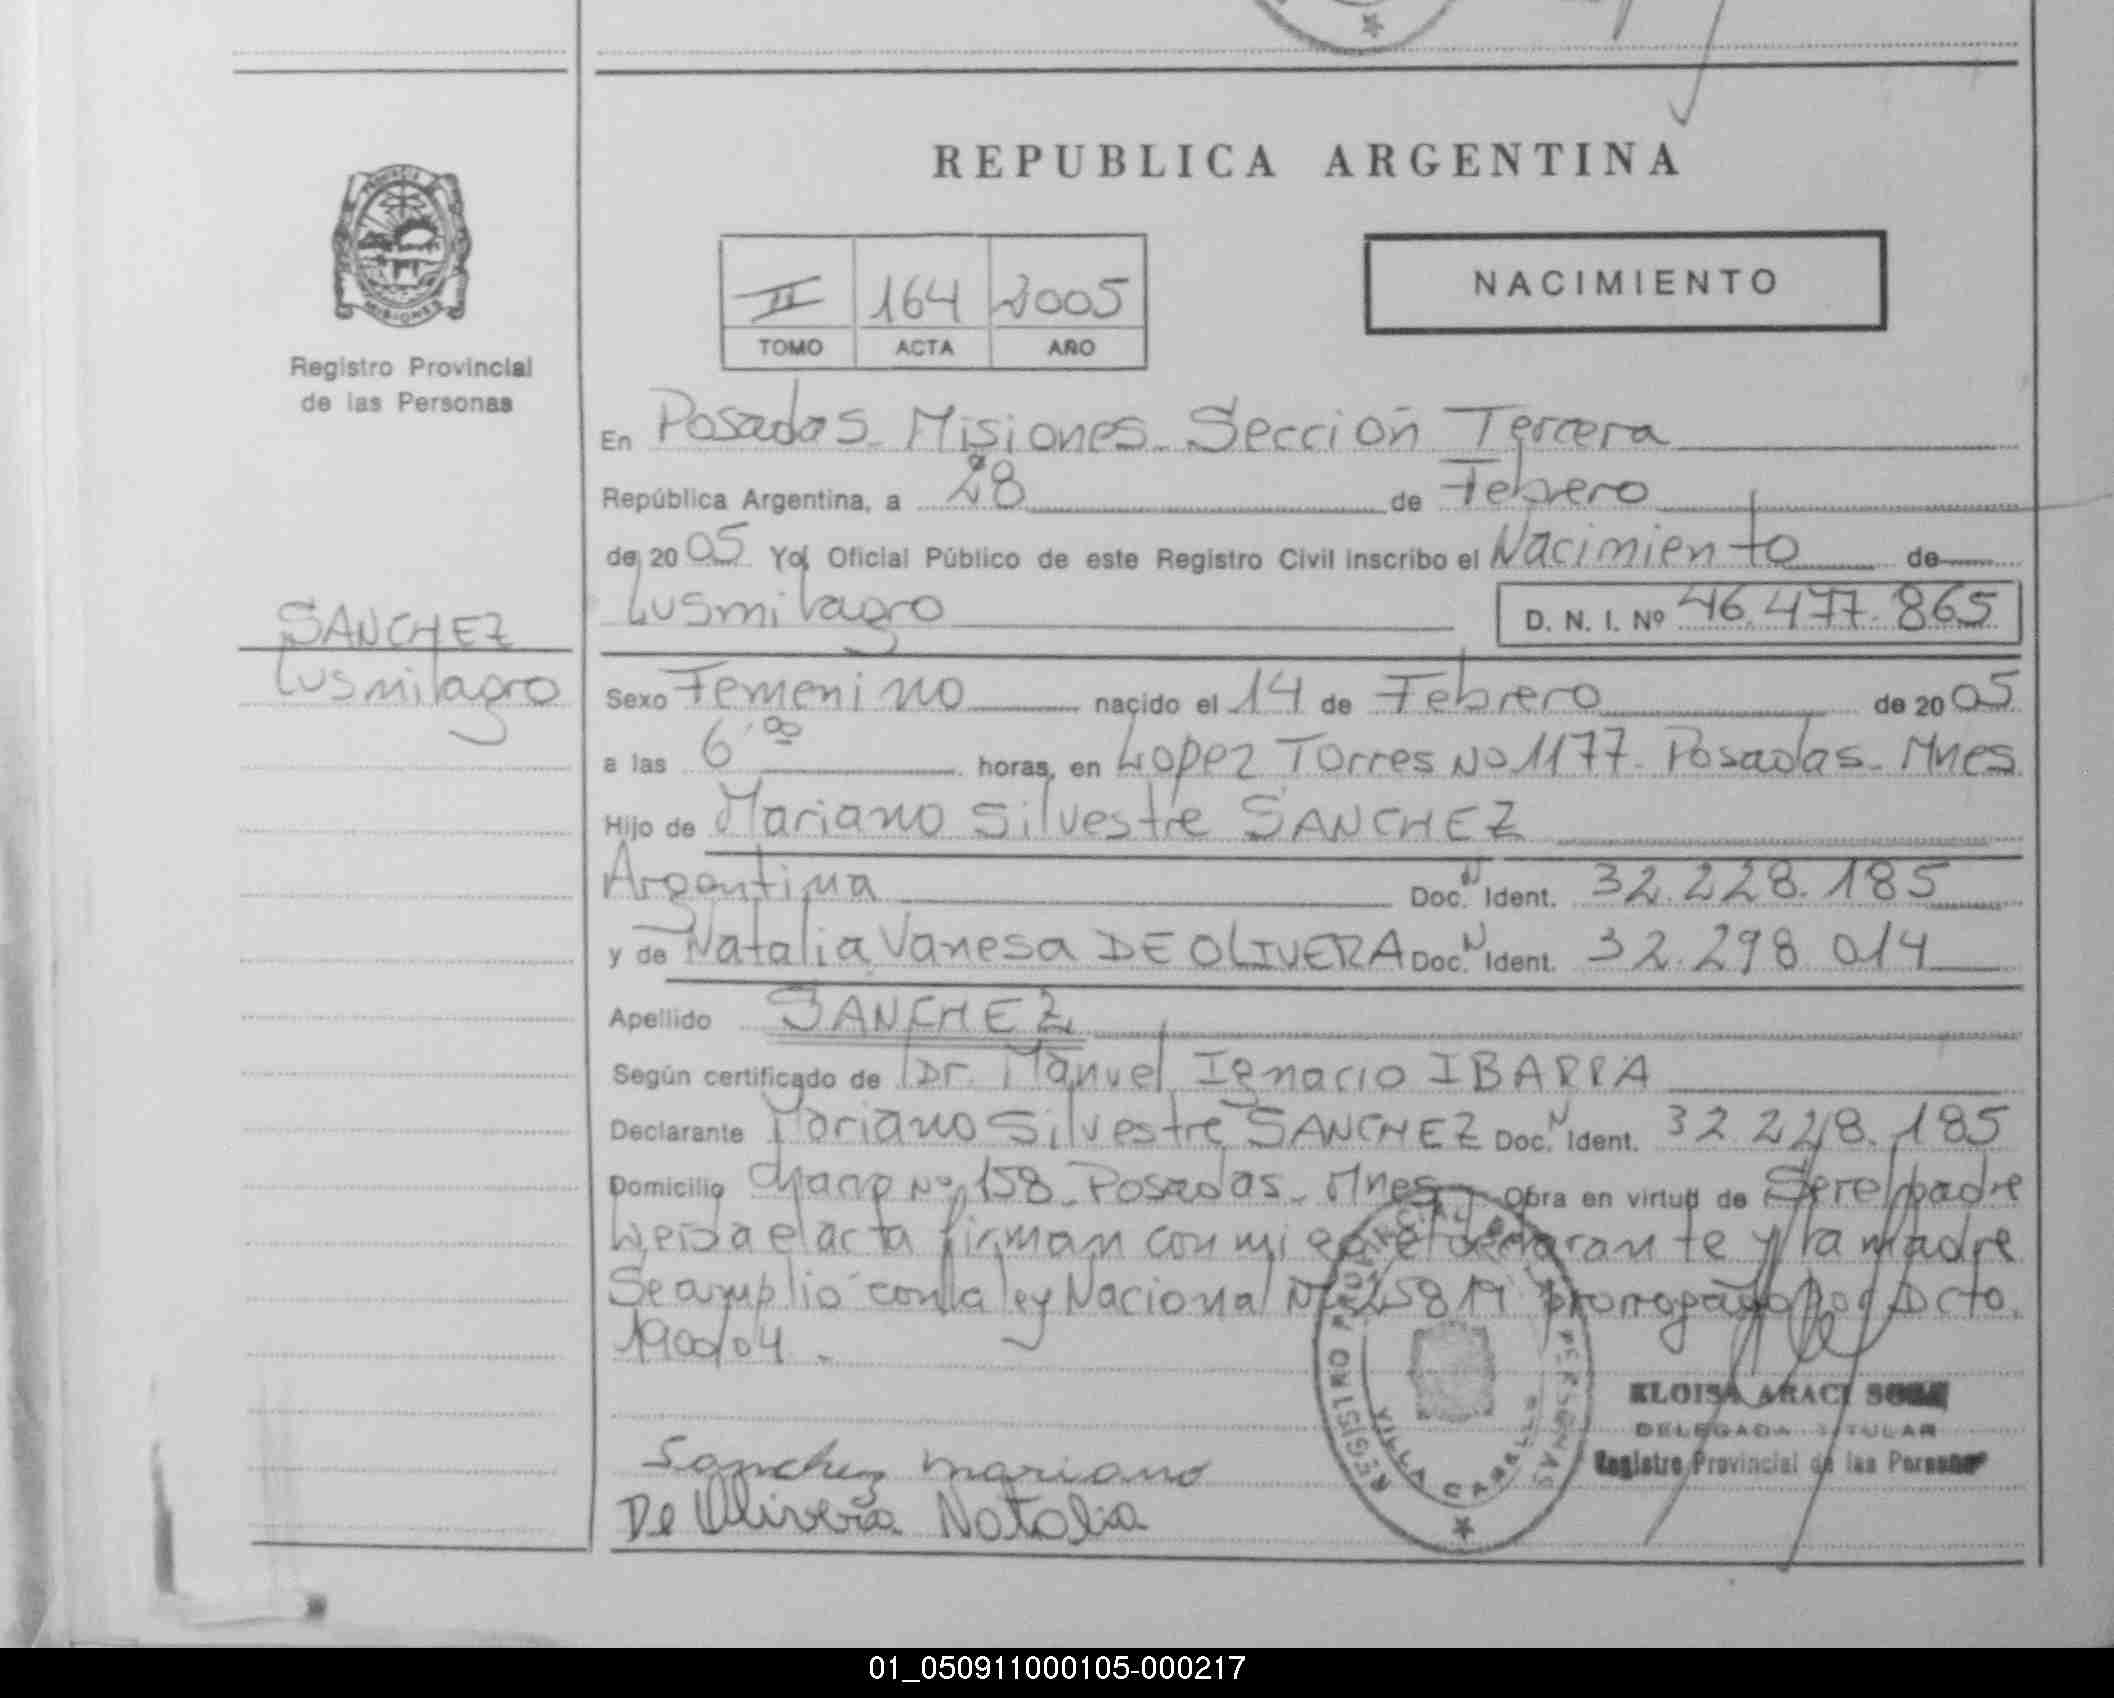 REPUBLICA ARGENTINA
NACIMIENTO
II 164 2005
TOMO ACTA AÑO
Registro Provincial
de las Personas
SANCHEZ
Lusmilagro
En Posadas - Misiones - Sección Tercera
República Argentina, a 28 de Febrero
de 2005 Yo, Oficial Público de este Registro Civil inscribo el Nacimiento de
Lusmilagro D. N. I. Nº 46.477.865
Sexo Femenino nacido el 14 de Febrero de 2005
a las 6,00 horas, en Lopez Torres No 1177 - Posadas - Mnes
Hijo de Mariano Silvestre SANCHEZ
Argentina Doc. N Ident. 32.228.185
y de Natalia Vanesa DE OLIVERA Doc. N Ident. 32.298.014
Apellido SANCHEZ
Según certificado de Dr. Manuel Ignacio IBARRA
Declarante Mariano Silvestre SANCHEZ Doc. N Ident. 32.228.185
Domicilio Nº 158 - Posadas - Mnes - Obra en virtud de Ser el padre
Leida el acta firman conmigo el declarante y la madre
Se amplió con la ley Nacional Nº 25819 Dcto.
1900/04 .
REGISTRO PROVINCIAL DE LAS PERSONAS
VILLA CABELLO
ELOISA ARACI
DELEGADA TITULAR
Registro Provincial de las Personas
Sanchez Mariano
De Olivera Natalia
01_050911000105-000217